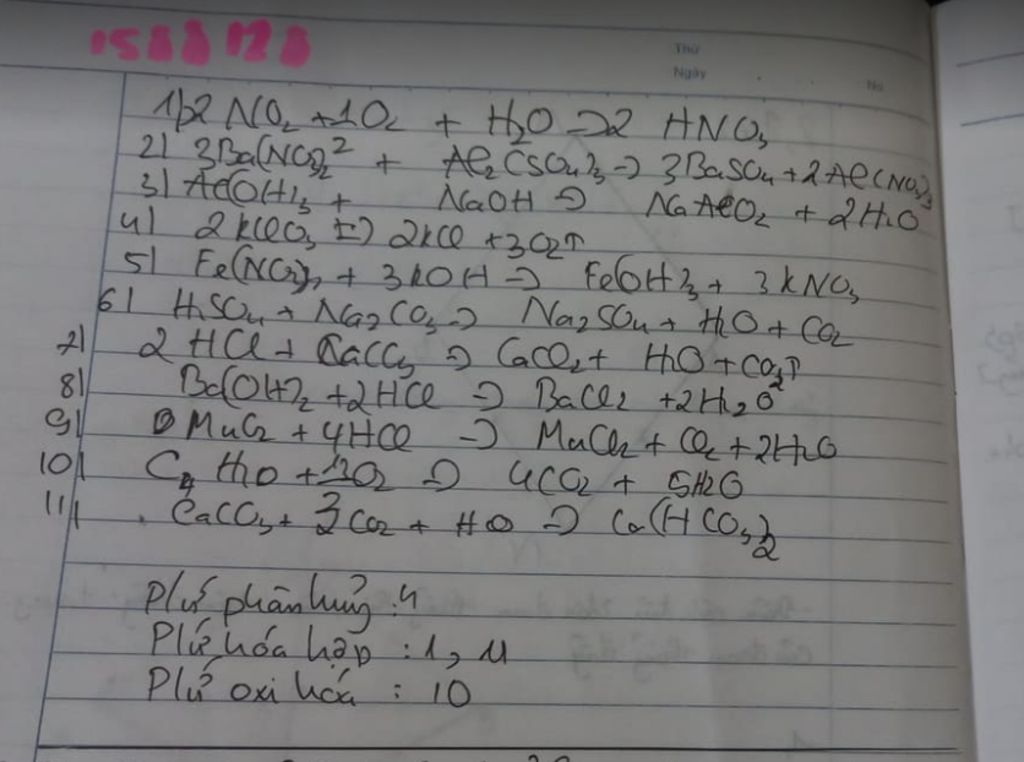 1588128
Thứ
Ngày
No
1) 2 NO₂ + 1O₂ + H₂O → 2 HNO₃
2) 3Ba(NO₃)₂ + Al₂(SO₄)₃ → 3BaSO₄ + 2Al(NO₃)₃
3) Al(OH)₃ + NaOH → NaAlO₂ + 2H₂O
4) 2KClO₃ → 2KCl + 3O₂↑
5) Fe(NO₃)₃ + 3KOH → Fe(OH)₃ + 3KNO₃
6) H₂SO₄ + Na₂CO₃ → Na₂SO₄ + H₂O + CO₂
7) 2 HCl + CaCO₃ → CaCl₂ + H₂O + CO₂↑
8) Ba(OH)₂ + 2HCl → BaCl₂ + 2H₂O
9) MnO₂ + 4HCl → MnCl₂ + Cl₂ + 2H₂O
10) C₄H₁₀ + O₂ → 4CO₂ + 5H2O
11) CaCO₃ + CO₂ + H O → Ca(HCO₃)₂
P/ứ phân hủy : 4
P/ứ hóa hợp : 1, 11
P/ứ oxi hóa : 10